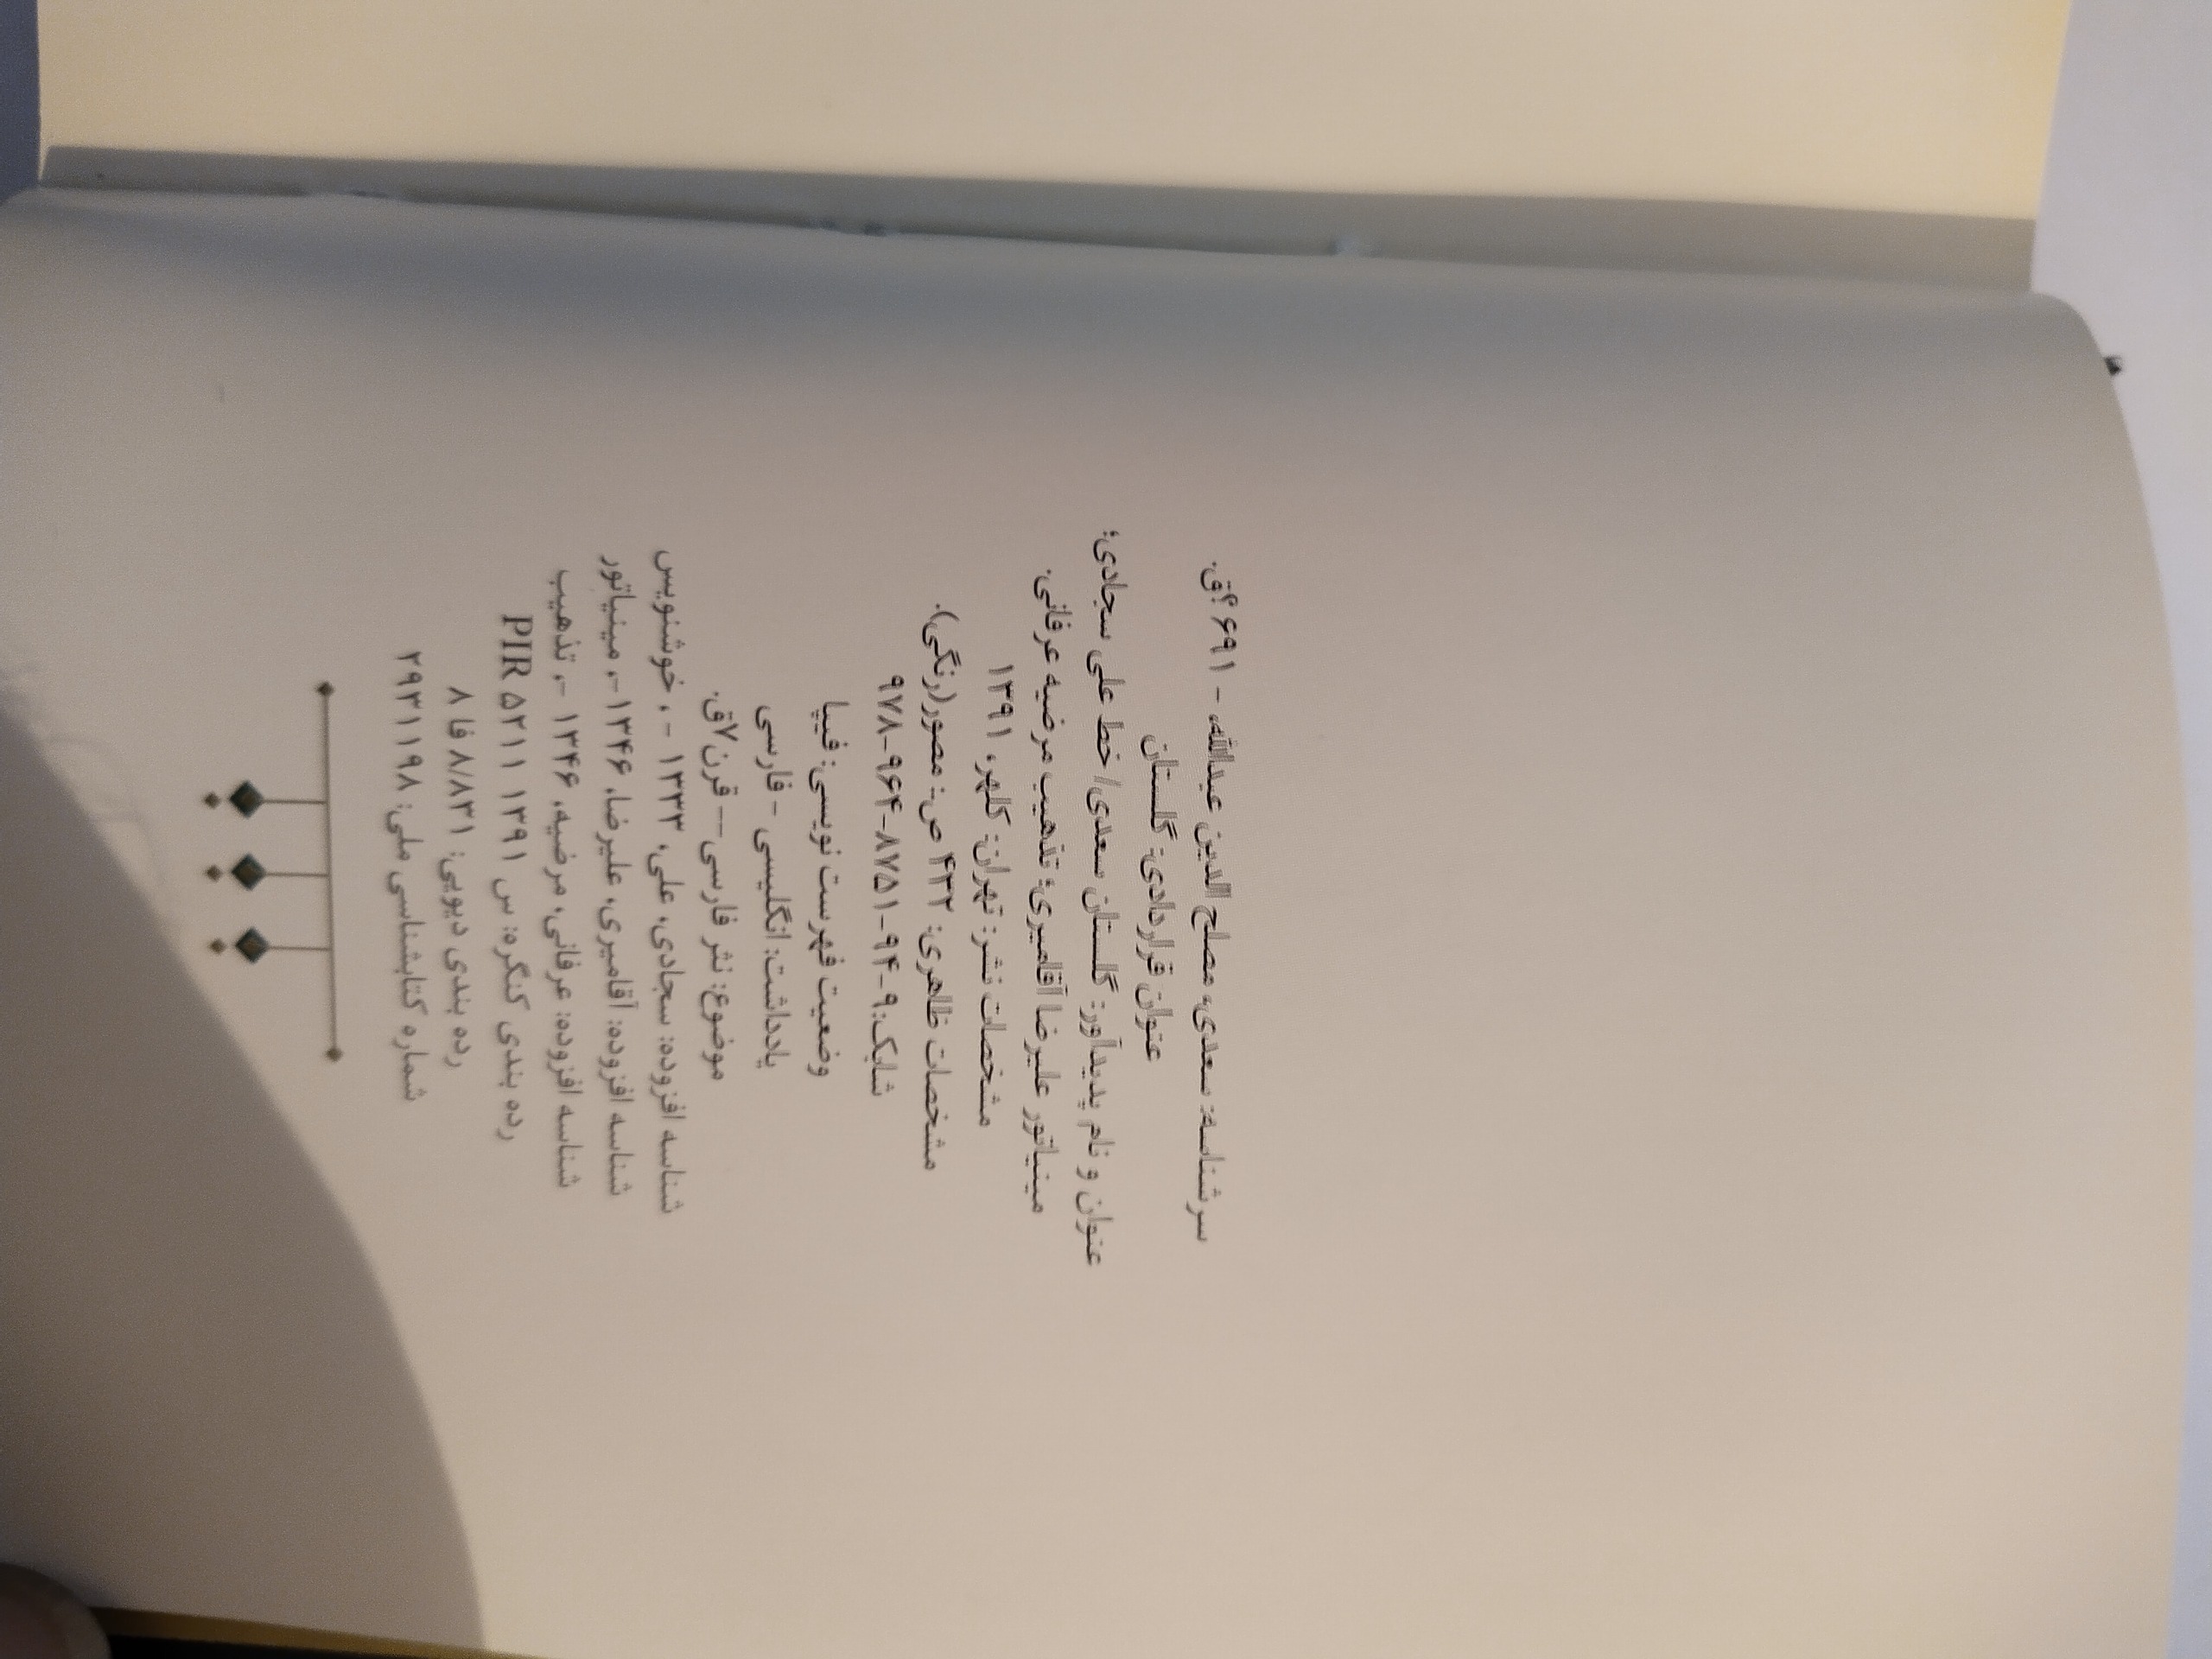 سرشناسه: سعدی، مصلح الدین عبدالله، - ۶۹۱ ؟ق.
عنوان قراردادی: گلستان
عنوان و نام پدیدآور: گلستان سعدی/ خط علی سجادی؛
مینیاتور علیرضا آقامیری؛ تذهیب مرضیه عرفانی.
مشخصات نشر: تهران: کلهر، ۱۳۹۱
مشخصات ظاهری: ۴۳۲ ص.: مصور(رنگی).
شابک: ۹-۹۴-۸۷۵۱-۹۶۴-۹۷۸
وضعیت فهرست نویسی: فیپا
یادداشت: انگلیسی - فارسی
موضوع: نثر فارسی -- قرن۷ق.
شناسه افزوده: سجادی، علی، ۱۳۳۳ - ، خوشنویس
شناسه افزوده: آقامیری، علیرضا، ۱۳۴۶ -، مینیاتور
شناسه افزوده: عرفانی، مرضیه، ۱۳۴۶ -، تذهیب
رده بندی کنگره: س ۱۳۹۱ ۵۲۱۱ PIR
رده بندی دیویی: ۸/۸۳۱ فا ۸
شماره کتابشناسی ملی: ۲۹۳۱۱۹۸